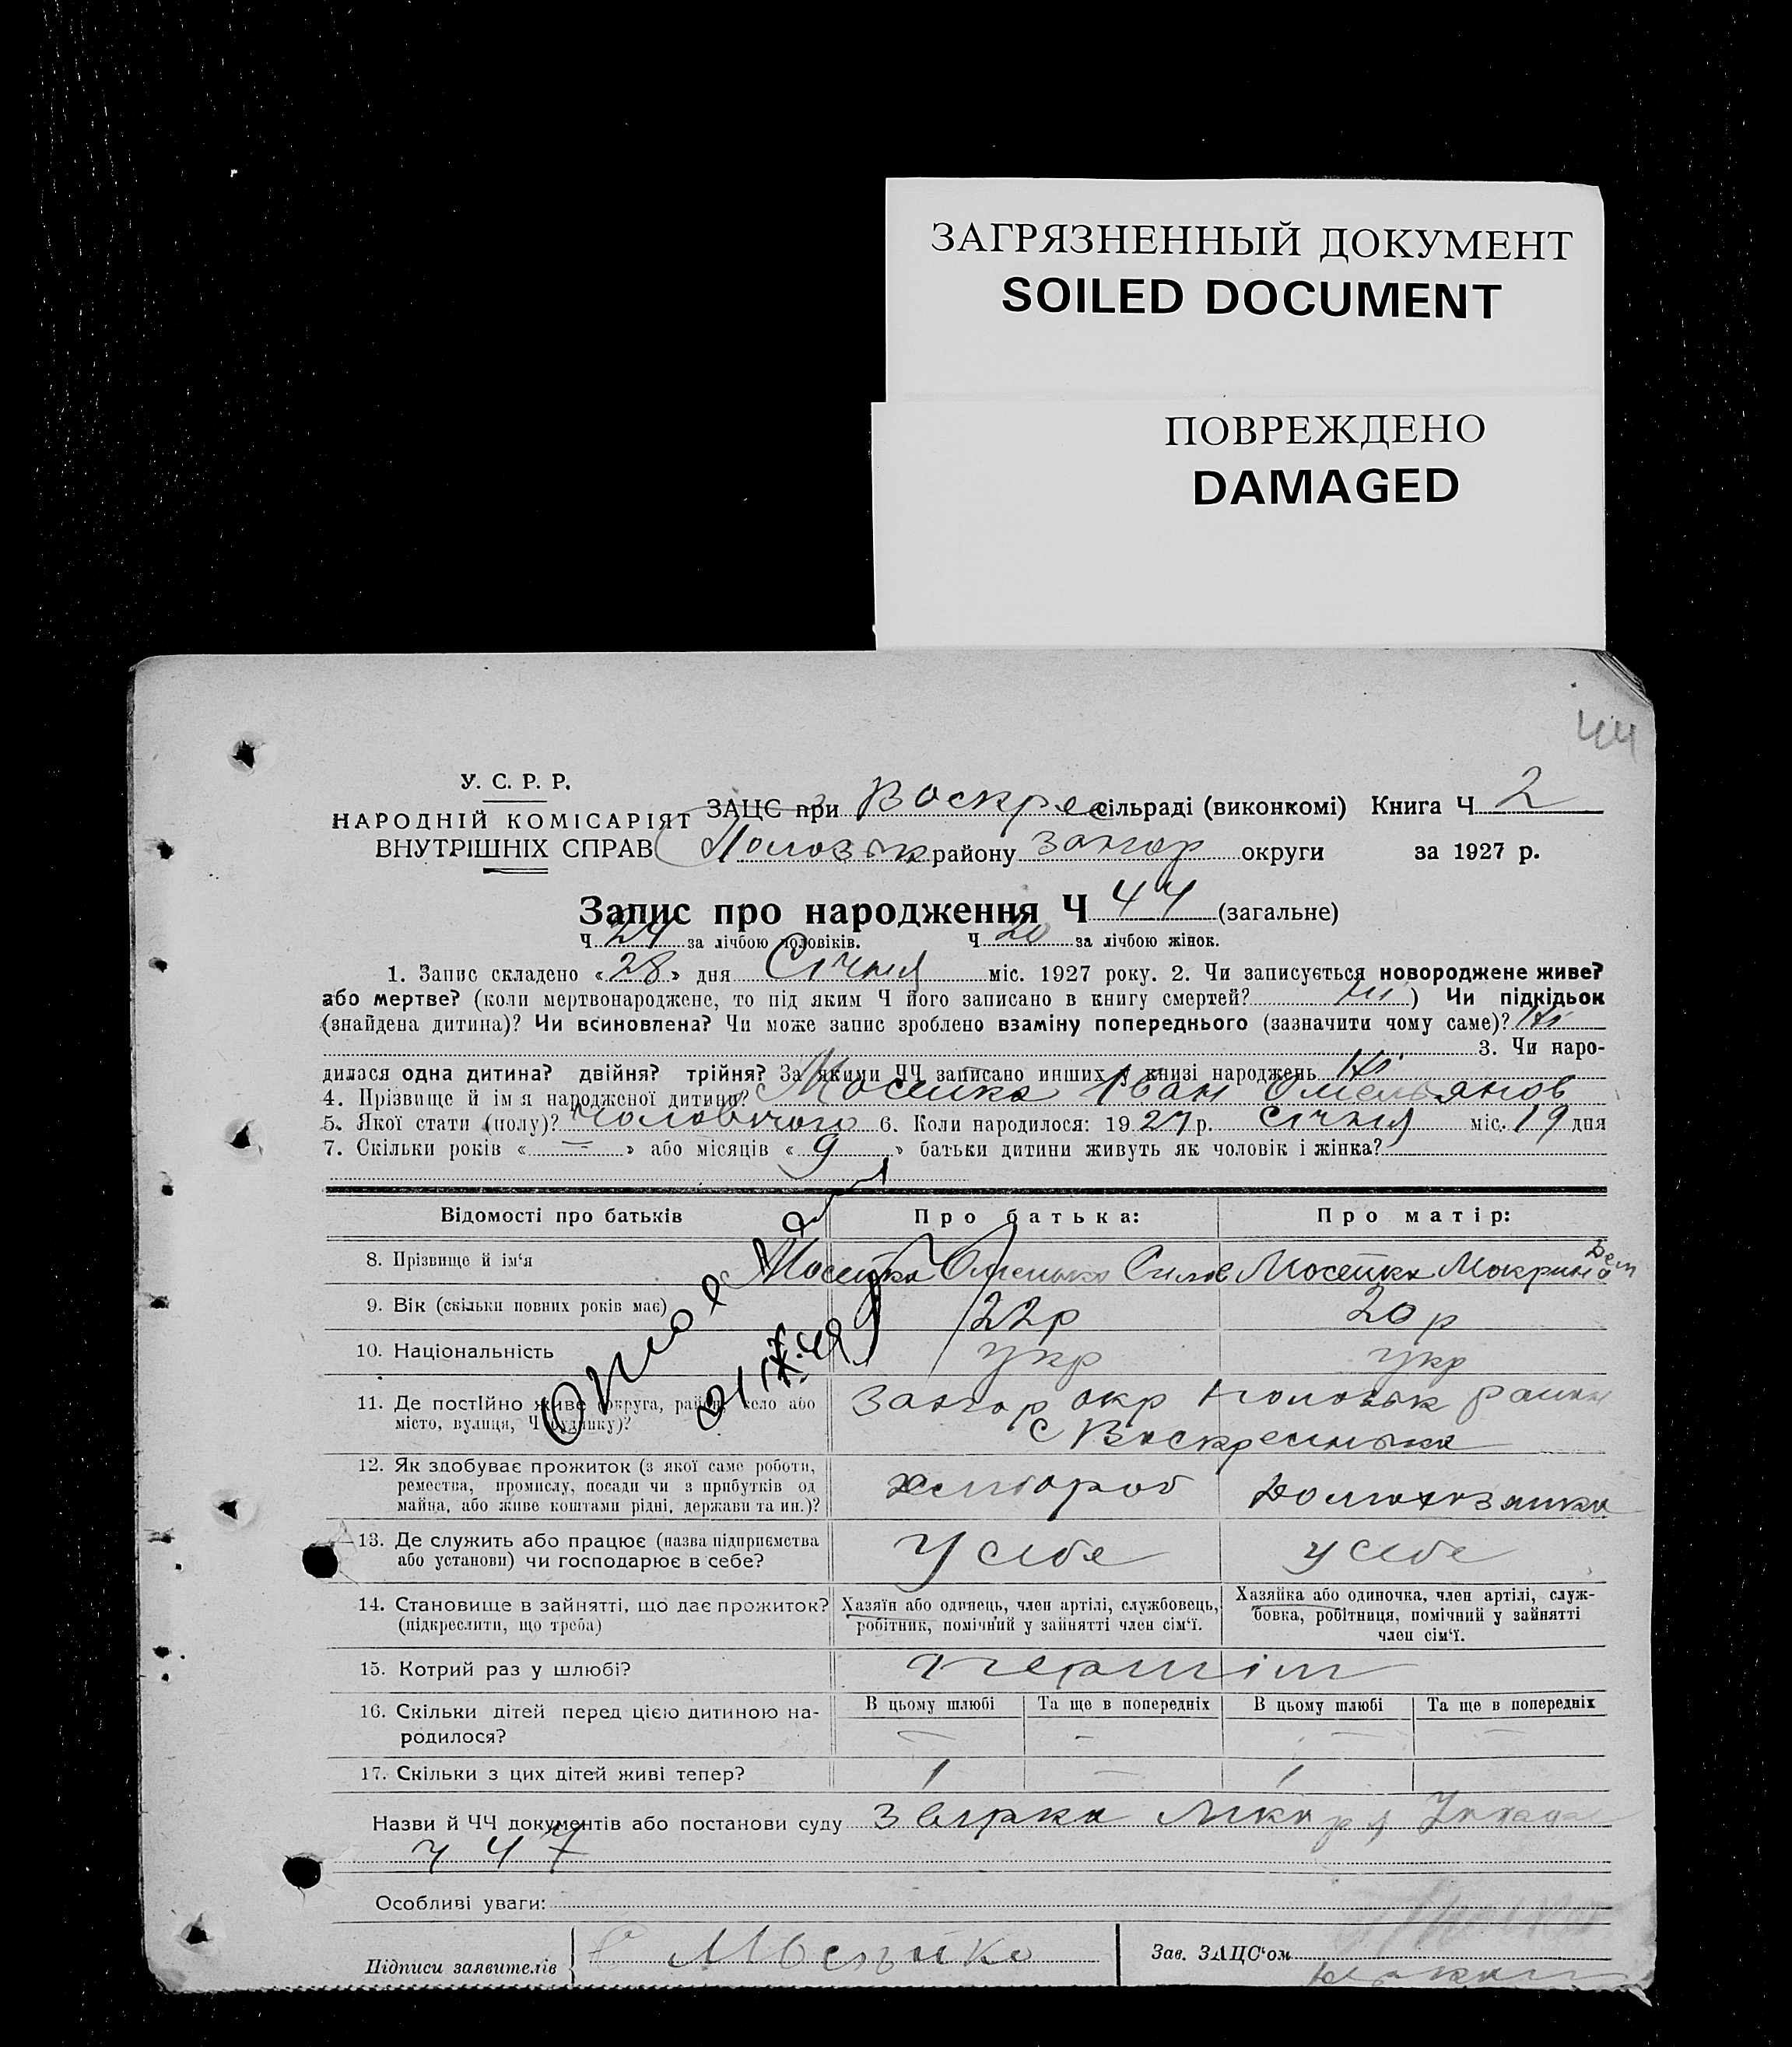 ЗАГРЯЗНЕННЫЙ ДОКУМЕНТ
SOILED DOCUMENT
ПОВРЕЖДЕНО
DAMAGED
44
У. С. Р. Р.
НАРОДНІЙ КОМІСАРІЯТ
ВНУТРІШНІХ СПРАВ
ЗАЦС при Воскрес сільраді (виконкомі) Книга Ч 2
району Запор округи за 1927 р.
Запис про народження Ч 44 (загальне)
Ч 24 за лічбою чоловіків. Ч 20 за лічбою жінок.
1. Запис складено « 28 » дня Січня міс. 1927 року. 2. Чи записується новороджене живе?
або мертве? (коли мертвонароджене, то під яким Ч його записано в книгу смертей? ні ) Чи підкідьок
(знайдена дитина)? Чи всиновлена? Чи може запис зроблено взаміну попереднього (зазначити чому саме)? Ні
3. Чи наро-
дилася одна дитина? двійня? трійня? За якими ЧЧ записано инших у книзі народжень Ні
4. Прізвище й ім'я народженої дитини? Мосейко Іван Омельянов
5. Якої стати (полу)? чоловічого 6. Коли народилося: 1927 р. січня міс. 19 дня
7. Скільки років « — » або місяців « 9 » батьки дитини живуть як чоловік і жінка?
Відомості про батьків Про батька: Про матір:
8. Прізвище й ім'я Мосейко Омелько Силов Мосейко Мокрина
9. Вік (скільки повних років має) 22р 20р
10. Національність укр укр
11. Де постійно живе (округа, район, село або Запор окр Пологськ район
місто, вулиця, Ч будинку)? с Воскресенька
12. Як здобуває прожиток (з якої саме роботи,
ремества, промислу, посади чи з прибутків од хлібороб Домохазяйка
майна, або живе коштами рідні, держави та ин.)?
13. Де служить або працює (назва підприємства У себе у себе
або установи) чи господарює в себе?
14. Становище в зайнятті, що дає прожиток? Хазяїн або одинець, член артілі, службовець, Хазяйка або одиночка, член артілі, служ-
(підкреслити, що треба) робітник, помічний у зайнятті член сім'ї. бовка, робітниця, помічний у зайнятті
член сім'ї.
15. Котрий раз у шлюбі? першій
16. Скільки дітей перед цією дитиною на- В цьому шлюбі Та ще в попередніх В цьому шлюбі Та ще в попередніх
родилося? — — — —
17. Скільки з цих дітей живі тепер? 1 — 1
Назви й ЧЧ документів або постанови суду Звірка
ч 47
Особливі уваги:
Підписи заявителів Мосейко Зав. ЗАЦС'ом